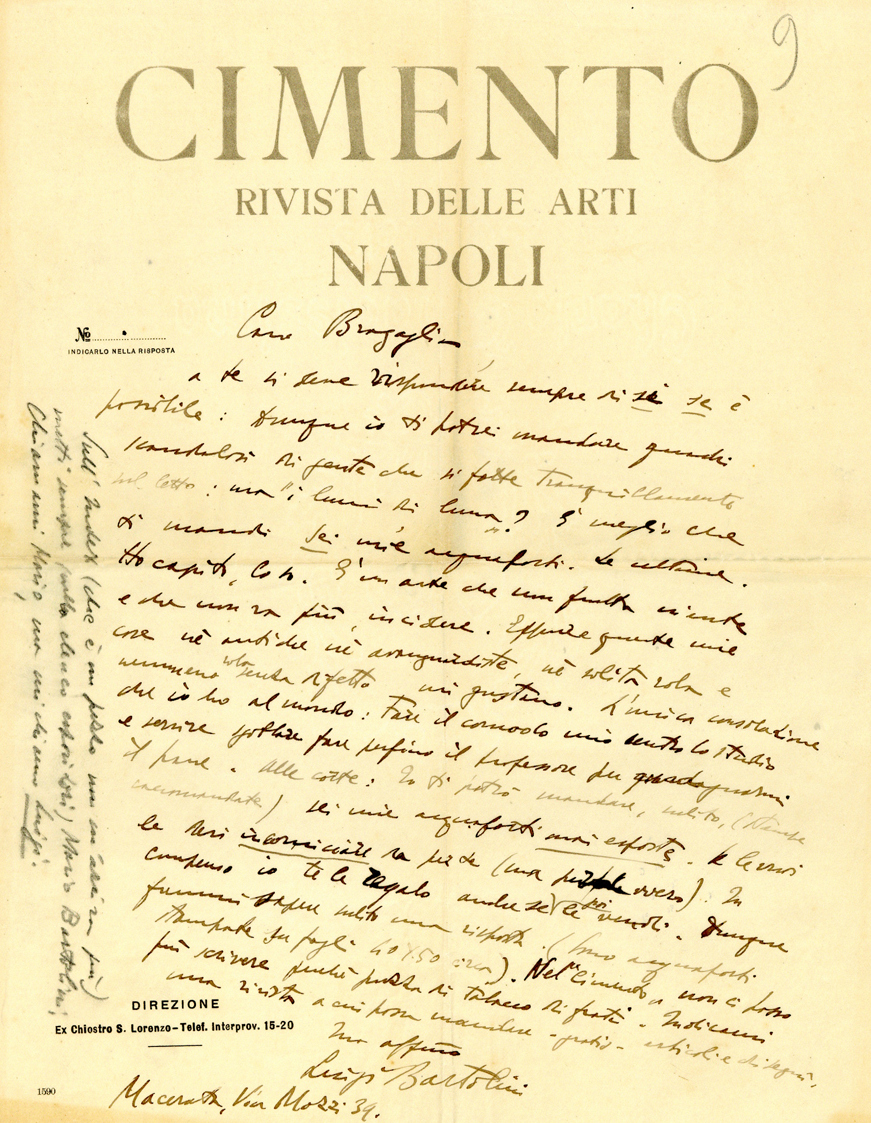 9
CIMENTO
RIVISTA DELLE ARTI
NAPOLI
№
INDICARLO NELLA RISPOSTA
Caro Bragaglia
a te si deve rispondere sempre di sì se è
possibile: dunque io ti potrei mandare quadri
scandalosi di gente che si fotte tranquillamente
nel letto: ma "i lumi di luna"? È meglio che
ti mandi sei mie acqueforti. Le ultime.
Ho capito, lo so. È un'arte che non frutta niente
e che non va più, incidere. Eppure queste mie
cose nè antiche nè avanguardiste, nè solita sola e
nemmeno sola senza difetto mi gustano. L'unica consolazione
che io ho al mondo: fare il comodo mio dentro lo studio
e servire fare perfino il professore per guadagnarmi
il pane. Alle corte: Io ti potrò mandare, subito, (stampe
raccomandate) sei mie acqueforti mai esposte. Se le vuoi
le devi incorniciare da per te (ma davvero). In
compenso io te le regalo anche se poi le vendi. Dunque
fammi sapere subito una risposta. (Sono acqueforti
stampate su fogli 40 x 50 circa). Nel "Cimento" non ci posso
più scrivere perchè puzza di tabacco di frati. Indicami
una rivista a cui possa mandare - gratis - articoli e disegni.
tuo affmo
Luigi Bartolini
Macerata, Via Mozzi 39.
Sull'Index (che è un pezzo non m'arriva più)
metti sempre (nello elenco espositori) Mario Bartolini;
Chiamami Mario, ma mi chiamo Luigi.
DIREZIONE
Ex Chiostro S. Lorenzo - Telef. Interprov. 15-20
1590